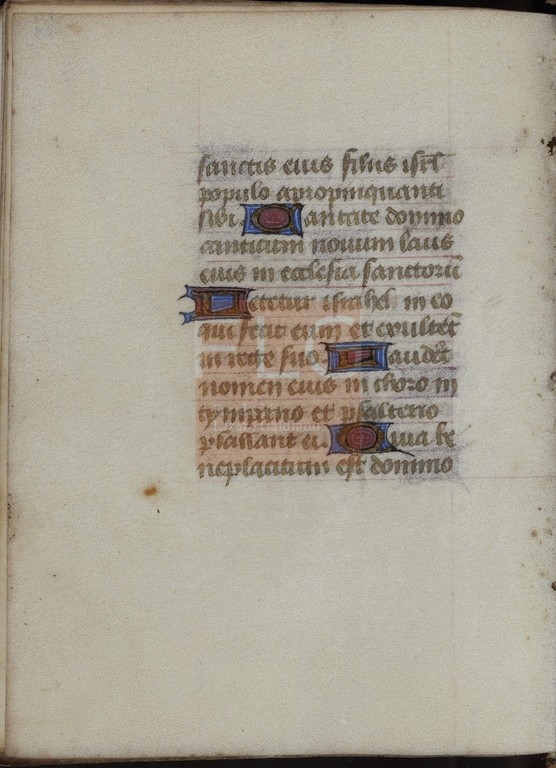 sanctis eius filiis isrl
populo apropinquanti
sibi. Cantate domino
canticum nouum laus
eius in ecclesia sanctorū
Letetur israhel in eo
qui fecit eum et exultēt
in rege suo. Laudēt
nomen eius in choro in
tympano et psalterio
psallant ei. Quia be
neplacitum est domino